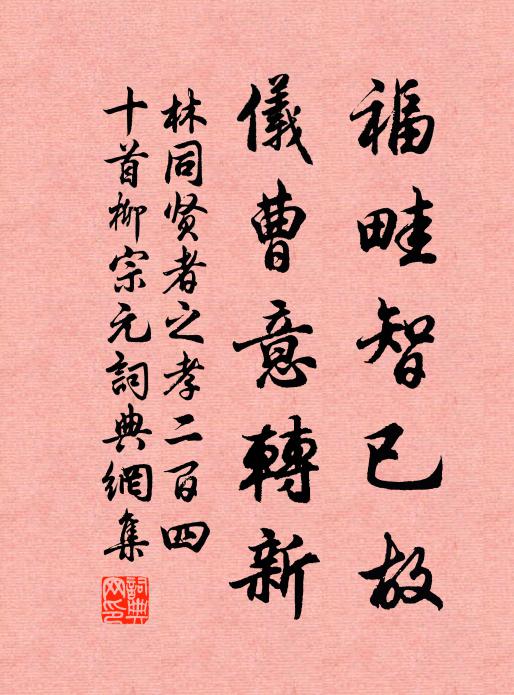 福畦智已故
儀曹意轉新
林同贤者之孝二百四
十首柳宗元詞典網集
詞典網印